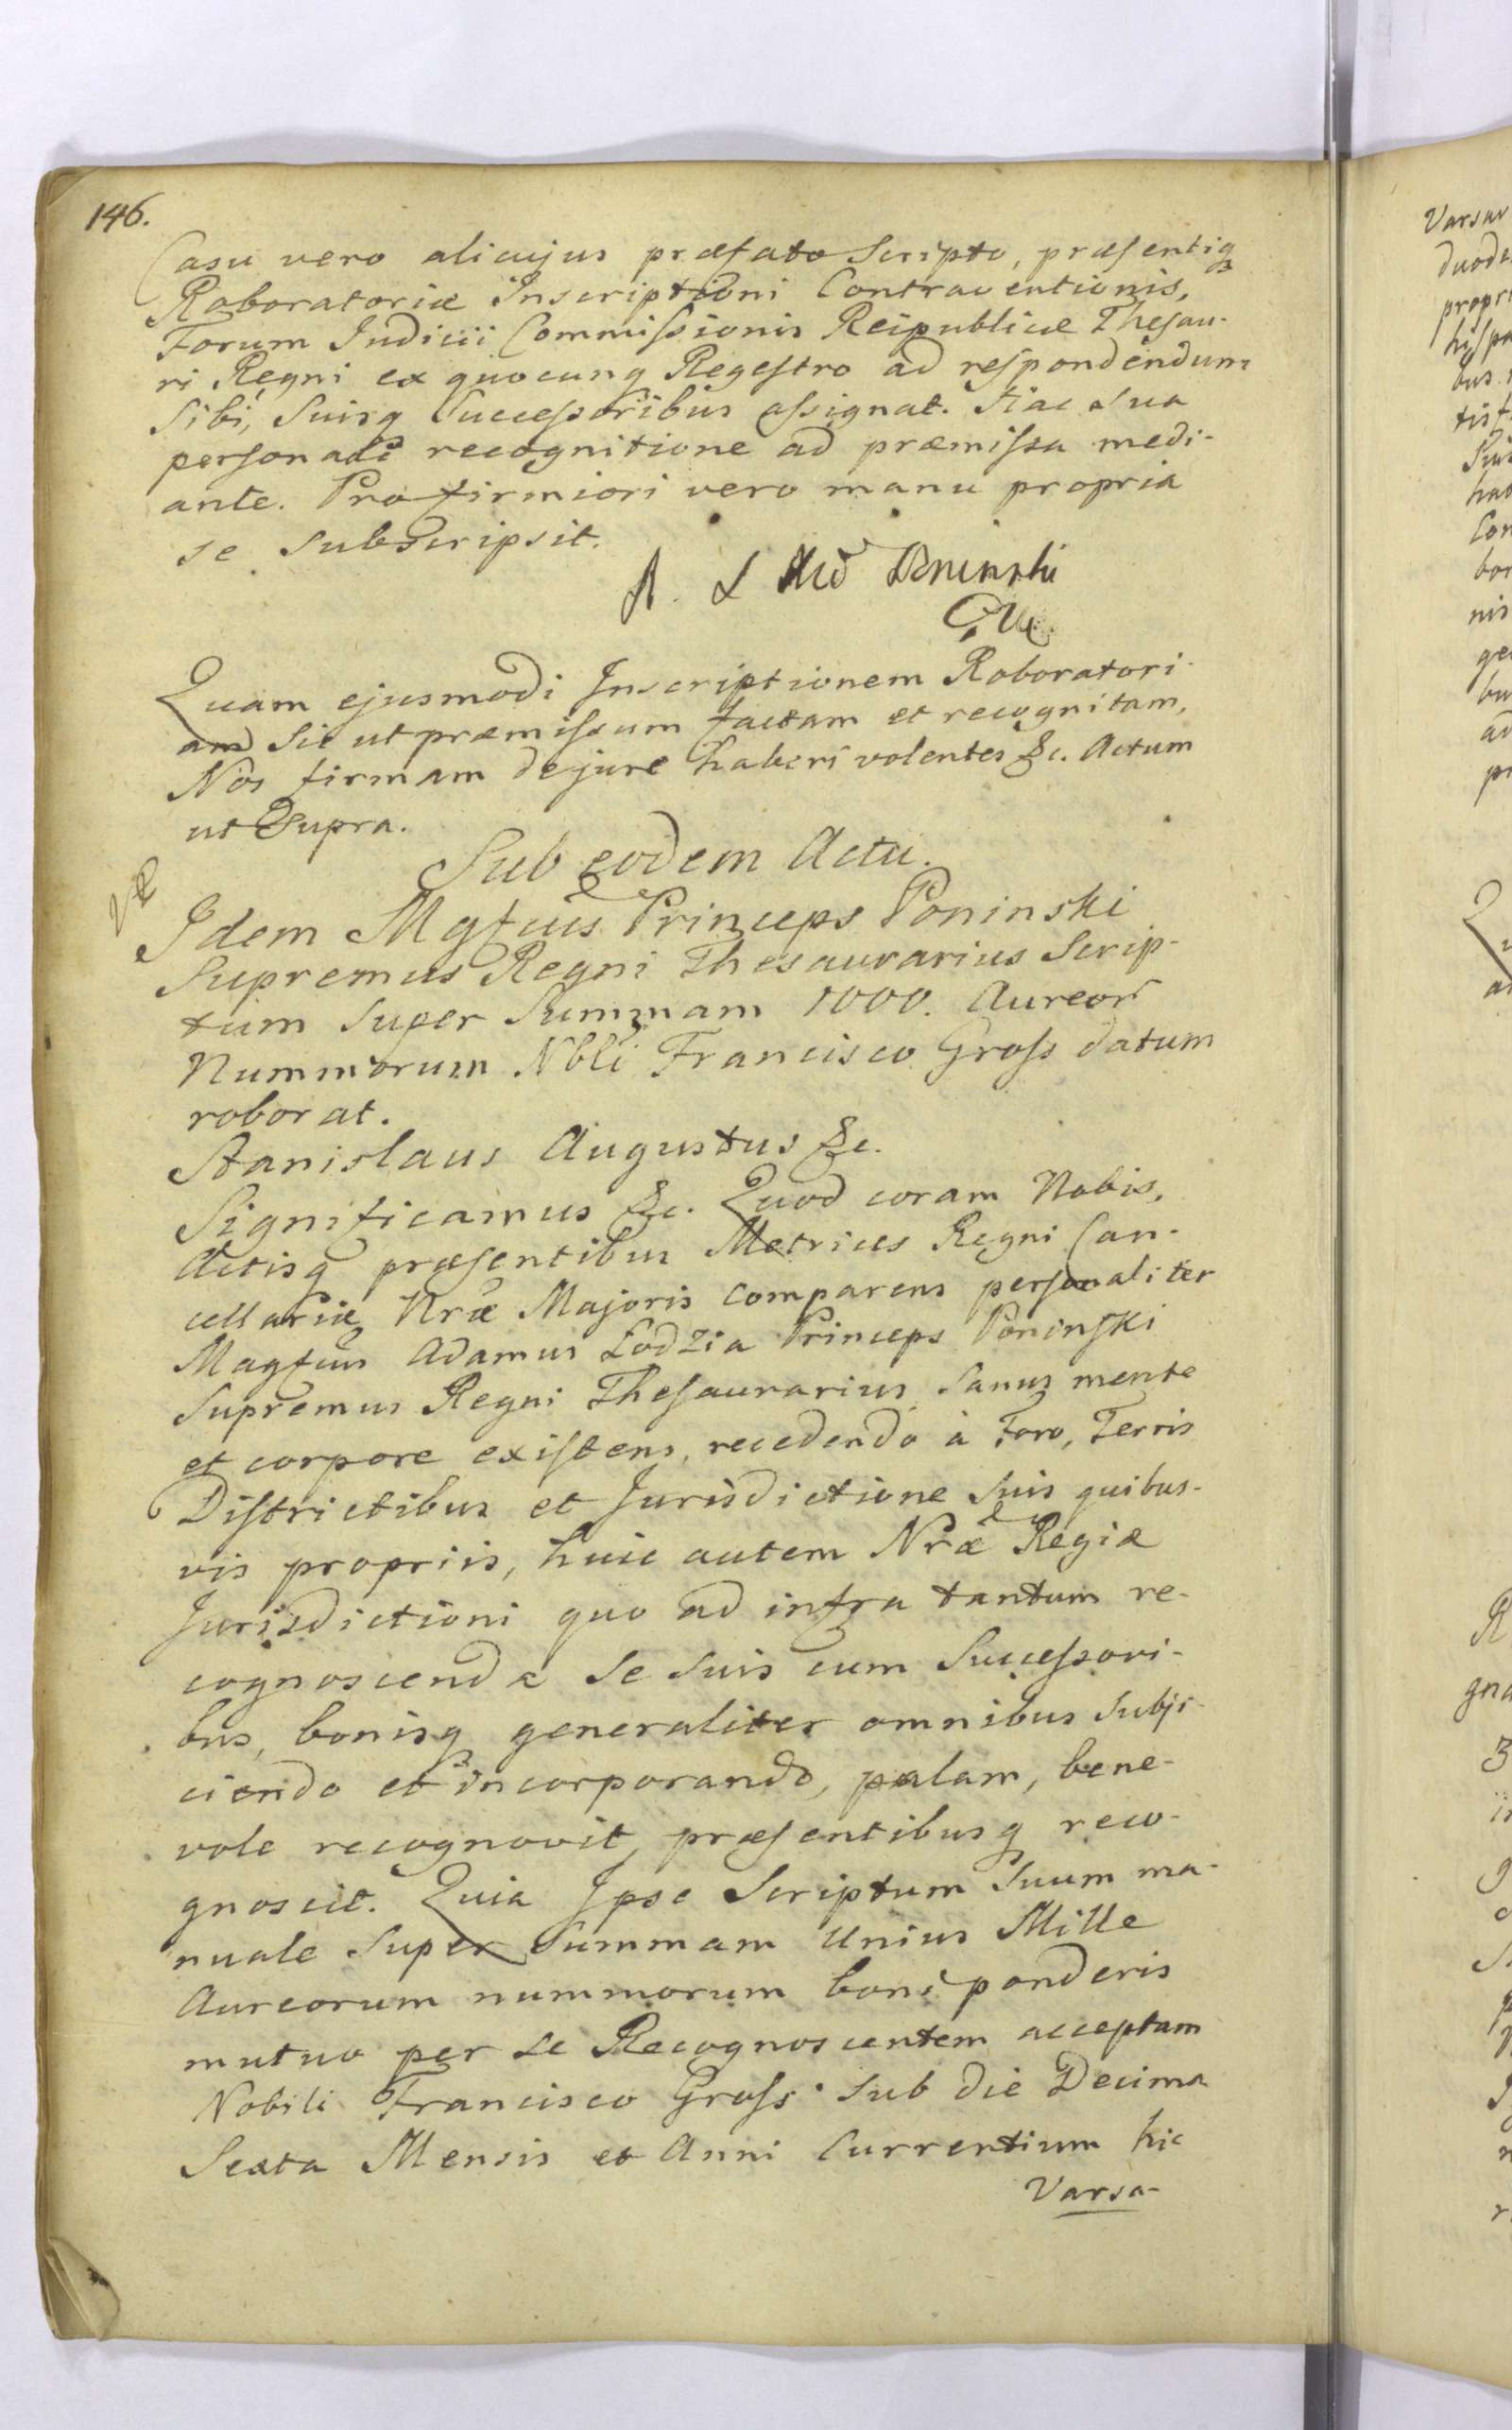 146.
Casu vero alicujus præfato Scripto, præsentiq
Roboratoriæ Inscriptioni Contraventionis,
Forum Judicii Commissionis Reipublicæ Thesau-
ri Regni ex quocunq Regestro ad respondendum
Sibi, Suisq Successoribus assignat. Hac Sua
personali recognitione ad præmissa medi-
ante. Pro firmiori vero manu propria
se Subscripsit.
Poninski
Quam ejusmodi Inscriptionem Roboratori-
am Sic ut præmissum factam et recognitam,
Nos firmam de jure haberi volentes &c. Actum
ut Supra.
Sub eodem Actu.
Idem Mgfcus Princeps Poninski
Supremus Regni Thesaurarius Scrip-
tum Super Summam 1000. Aureor
Nummorum Nbli Francisco Gross datum
roborat.
Stanislaus Augustus &c.
Significamus &c. Quod coram Nobis,
Actisq præsentibus Metrices Regni Can-
cellariæ Nræ Majoris Comparens personaliter
Magfcus Adamus Łodzia Princeps Poninski
Supremus Regni Thesaurarius Sanus mente
et corpore existens, recedendo à Foro, Terris
Districtibus et Jurisdictione Suis quibus-
vis propriis, huic autem Nræ Regiæ
Jurisdictioni quo ad infra tantum re-
cognoscenda Se Suis cum Successori-
bus, bonisq generaliter omnibus Subji-
ciendo et incorporando, palam, bene-
vole recognovit, præsentibusq reco-
gnoscit. Quia Ipse Scriptum Suum ma-
nuale Super Summam Unius Mille
Aureorum nummorum boni ponderis
mutuo per se Recognoscentem acceptam
Nobili Francisco Gross Sub die Decima
Sexta Mensis et Anni Currentium hic
Varsa-